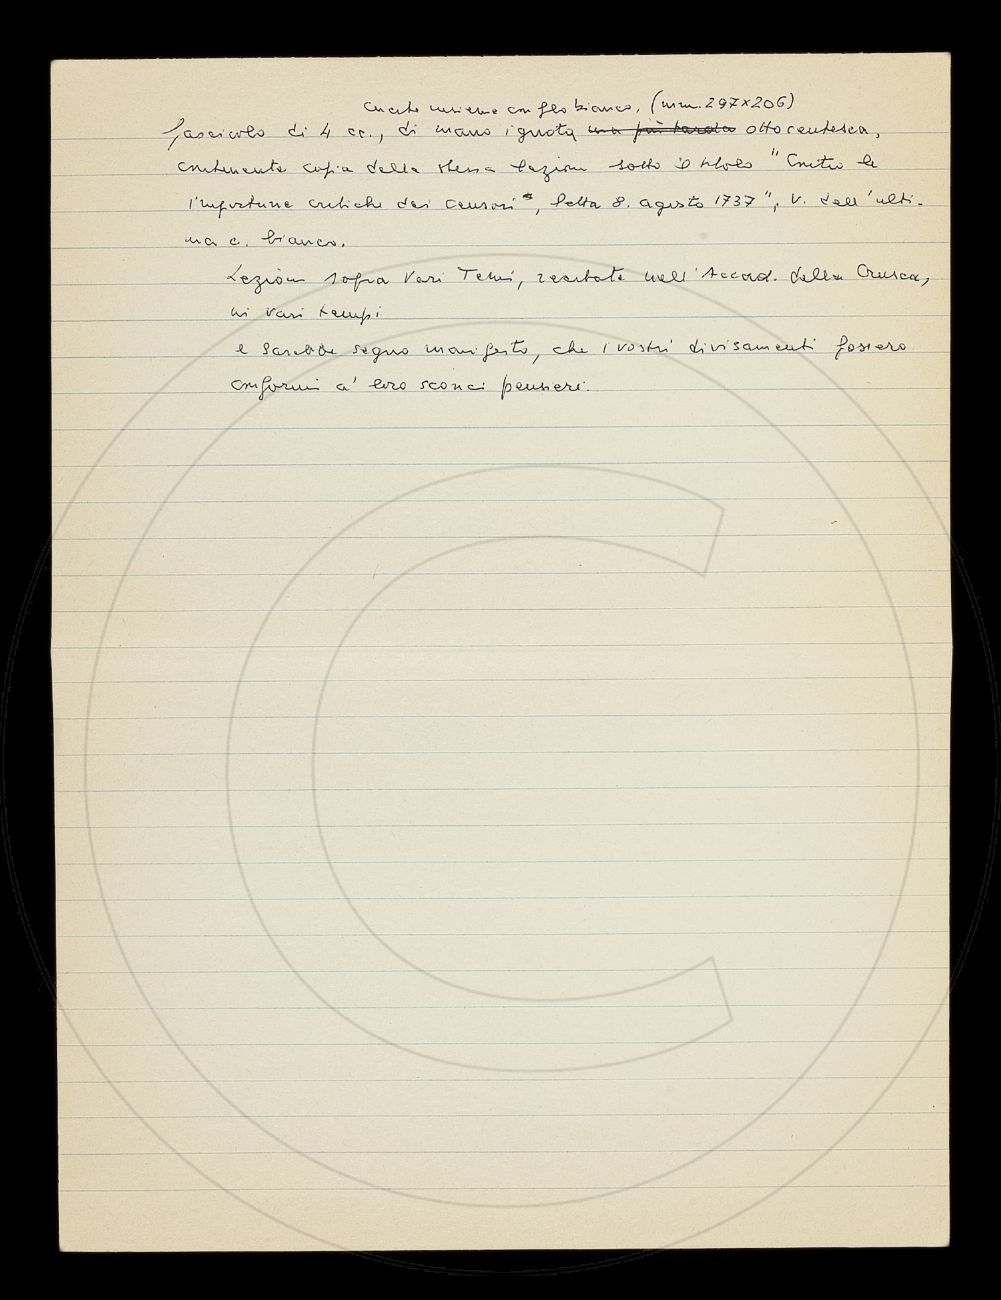 cucite insieme con filo bianco, (mm. 297x206)
fascicolo di 4 cc., di mano ignota ma più tarda ottocentesca,
contenente copia della stessa lezione sotto il titolo "Contro le
l'importune critiche dei censori", letta 8. agosto 1737", V. dell'ulti-
ma c. bianco.
Lezioni sopra Vari Temi, recitate nell'Accad. della Crusca,
in vari tempi
e sarebbe segno manifesto, che i vostri divisamenti fossero
conformi a' loro sconci pensieri.
C